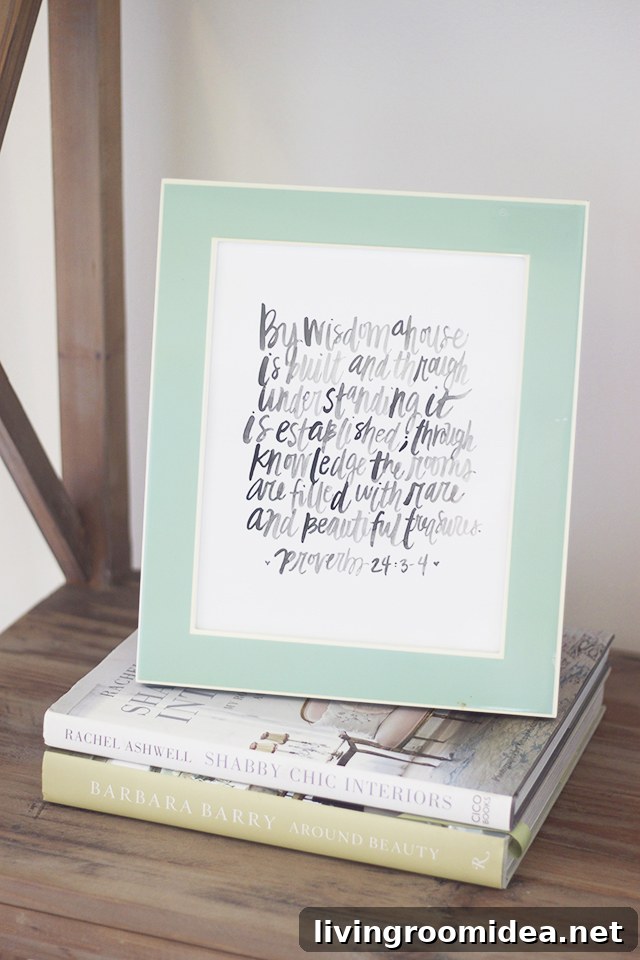 By wisdom a house
is built and through
understanding it
is established; through
knowledge the rooms
are filled with rare
and beautiful treasures.
Proverbs 24:3-4
RACHEL ASHWELL SHABBY CHIC INTERIORS
CICO
BOOKS
BARBARA BARRY AROUND BEAUTY
R
livingroomidea.net